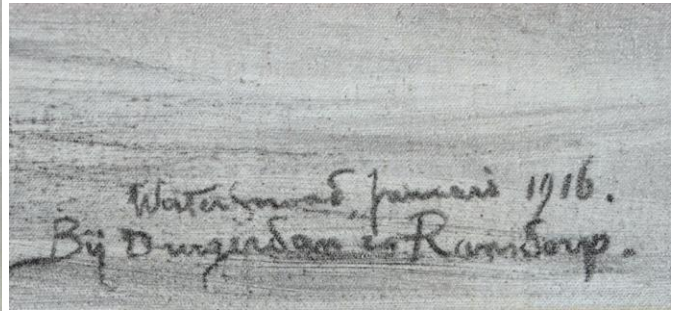 Watersnood, Januari 1916.
Bij Durgerdam en Ransdorp.